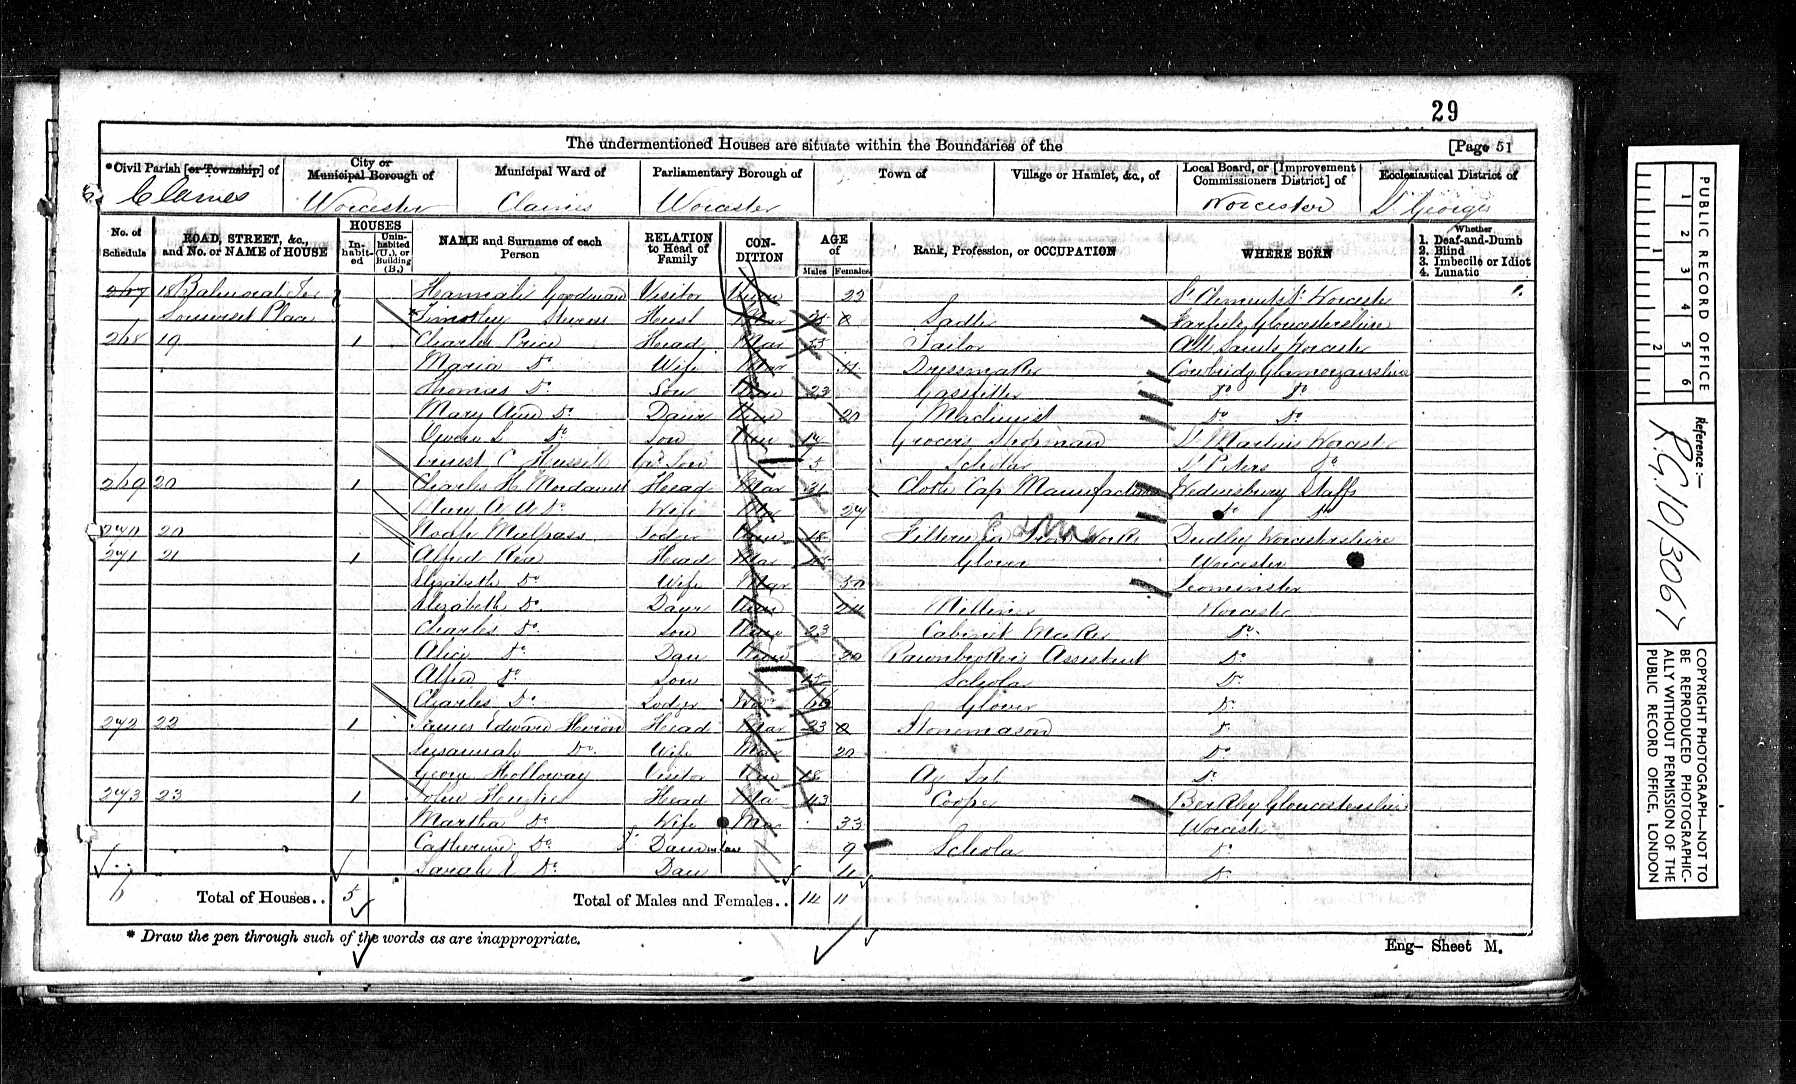 29
The undermentioned Houses are situate within the Boundaries of the
[Page 51
*Civil Parish [or Township] of
City or Municipal Borough of
Municipal Ward of
Parliamentary Borough of
Town of
Village or Hamlet, &c., of
Local Board, or [Improvement Commissioners District] of
Ecclesiastical District of
Claines Worcester Claines Worcester Worcester St Georges
No. of Schedule
ROAD, STREET, &c., and No. or NAME of HOUSE
HOUSES
In-habit-ed
Unin-habited (U.), or Building (B.)
NAME and Surname of each Person
RELATION to Head of Family
CON-DITION
AGE of
Males Females
Rank, Profession, or OCCUPATION
WHERE BORN
Whether
1. Deaf-and-Dumb
2. Blind
3. Imbecile or Idiot
4. Lunatic
267 18 Balmoral Hannah Goodman Visitor Unm 22 St Clements Worcester
Somerset Place Timothy Mar Sadler Gloucestershire
268 19 1 Charles Price Head Mar 55 Tailor All Saints Worcester
Maria Do Wife Mar Dressmaker Cowbridge Glamorganshire
Thomas Do Son Unm 23 Gasfitter Do Do
Mary Ann Do Daur Unm 20 Machinist Do Do
Owen Do Son Unm Grocers Shopman St Martins Worcester
Ernest C Gr Son 5 Scholar St Peters Do
269 20 1 Charles H. Head Mar 31 Cloth Cap Manufacturer Wednesbury Staffs
A Do Wife Mar 27 Do Do
270 20 Noah Malpass Lodger Unm 18 Iron Works Dudley Worcestershire
271 21 1 Alfred Head Mar Glover Worcester
Elizabeth Do Wife Mar 50 Leominster
Elizabeth Do Daur Unm 24 Milliner Worcester
Charles Do Son Unm 23 Cabinet Maker Do
Alice Do Dau Unm 20 Pawnbroker's Assistant Do
Alfred Do Son 15 Scholar Do
Charles Do Lodger Glover Do
272 22 1 James Edward Head Mar 23 Stonemason Do
Susannah Do Wife Mar 20 Do
George Holloway Visitor Unm 18 Ag Lab Do
273 23 1 John Head Mar 43 Cooper Berkley Gloucestershire
Martha Do Wife Mar 33 Worcester
Catherine Do Dau 9 Scholar Do
Sarah Do Dau 4 Do
6 Total of Houses.. 5
Total of Males and Females.. 14 11
* Draw the pen through such of the words as are inappropriate.
Eng- Sheet M.
PUBLIC RECORD OFFICE
1 2 3 4 5 6
1 2
Reference:-
R.G. 10/3067
COPYRIGHT PHOTOGRAPH—NOT TO BE REPRODUCED PHOTOGRAPHIC-ALLY WITHOUT PERMISSION OF THE PUBLIC RECORD OFFICE, LONDON